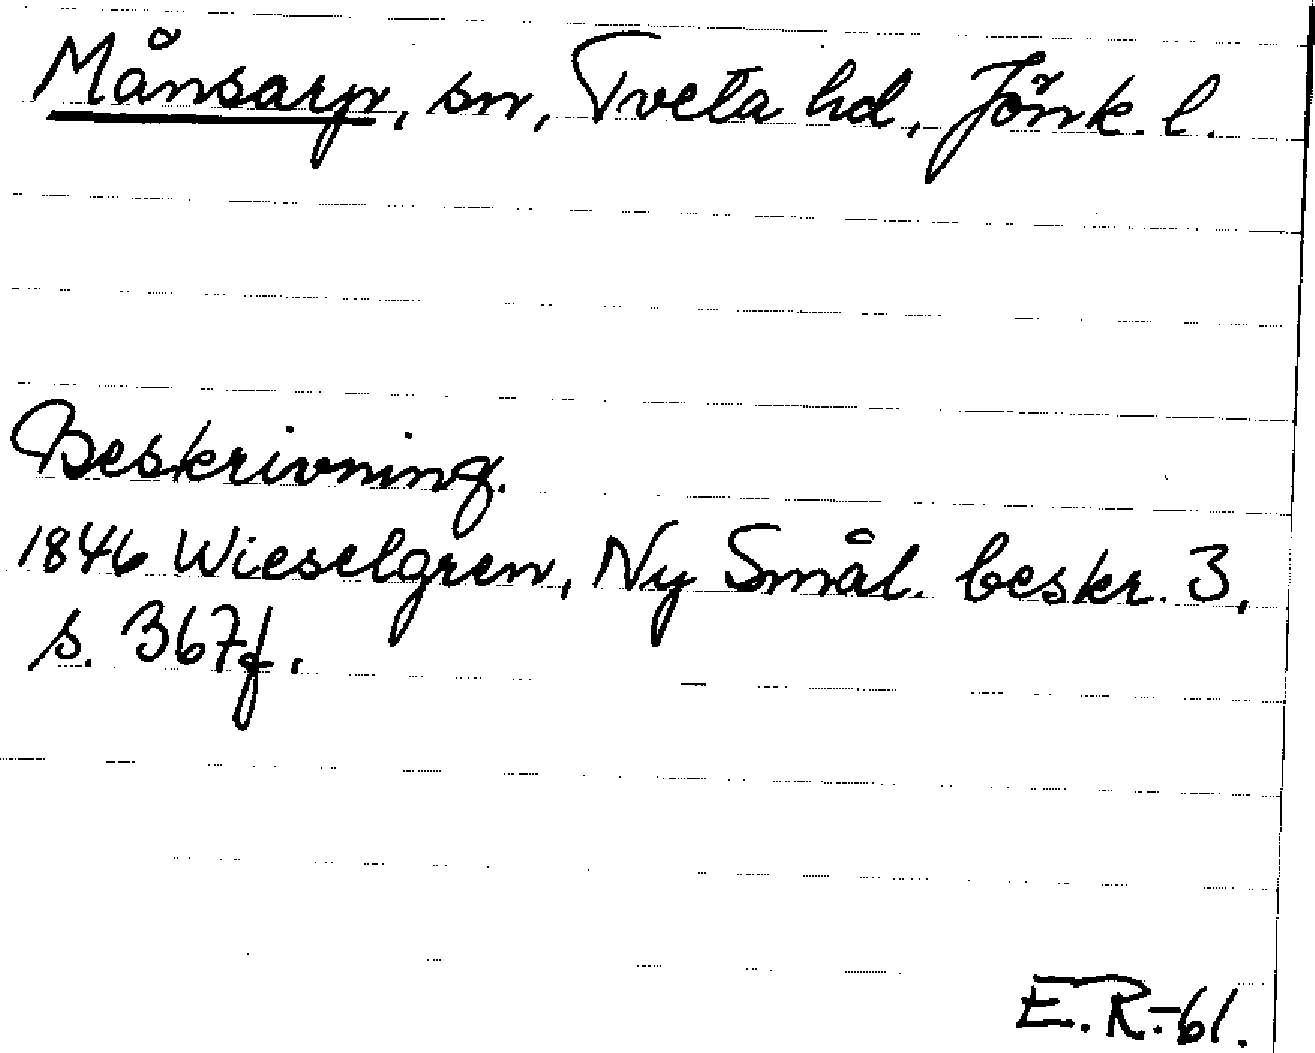 Månsarp, sn, Tveta hd, Jönk. l.
Beskrivning.
1846 Wieselgren, Ny Smål. beskr. 3,
s. 367f.
E.R.-61.